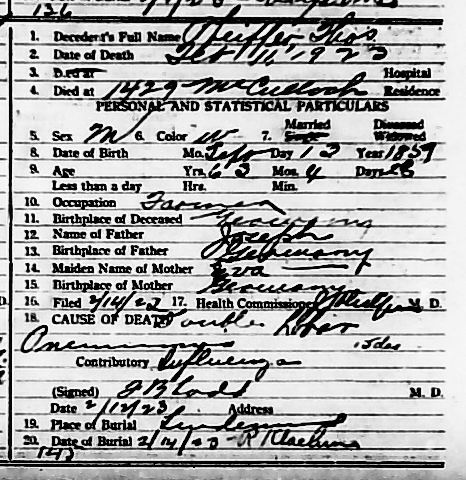 136
1. Decedent's Full Name Pfeiffer Thos
2. Date of Death Feb 11, 1923
3. Died at Hospital
4. Died at 1429 McCulloch Residence
PERSONAL AND STATISTICAL PARTICULARS
5. Sex M 6. Color W 7. Married Single Diseased Widowed
8. Date of Birth Mo. Day 13 Year 1859
9. Age Yrs. 63 Mos. 4 Days 28
Less than a day Hrs. Min.
10. Occupation Farmer
11. Birthplace of Deceased Germany
12. Name of Father Joseph
13. Birthplace of Father Germany
14. Maiden Name of Mother Eva
15. Birthplace of Mother Germany
16. Filed 2/14/23 17. Health Commissioner M. D.
18. CAUSE OF DEATH Double Lobar
Pneumonia 15 des
Contributory Influenza
(Signed) M. D.
Date 2/12/23 Address
19. Place of Burial Lindenwood
20. Date of Burial 2/14/23 R Klaehn